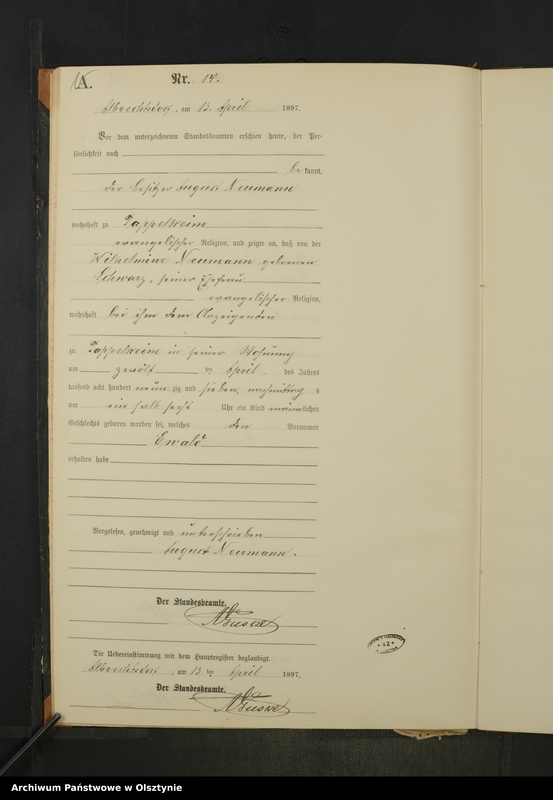 A.
Nr. 14.
Albrechtsdorf, am 13. April 1897.
Vor dem unterzeichneten Standesbeamten erschien heute, der Per-
sönlichkeit nach
be kannt,
der Besitzer August Neumann
wohnhaft zu Tappelkeim
evangelischer Religion, und zeigte an, daß von der
Wilhelmine Neumann geborenen
Schwarz, seiner Ehefrau
evangelischer Religion,
wohnhaft bei ihm dem Anzeigenden
zu Tappelkeim in seiner Wohnung
am zwölf ten April des Jahres
tausend acht hundert neun zig und sieben, nachmittag s
um ein halb sechs Uhr ein Kind männlichen
Geschlechts geboren worden sei, welches den Vornamen
Ewald
erhalten habe
Vorgelesen, genehmigt und unterschrieben
August Neumann.
Der Standesbeamte.
Die Uebereinstimmung mit dem Hauptregister beglaubigt.
Albrechtsdorf, am 13 ten April 1897.
Der Standesbeamte.
42
Archiwum Państwowe w Olsztynie